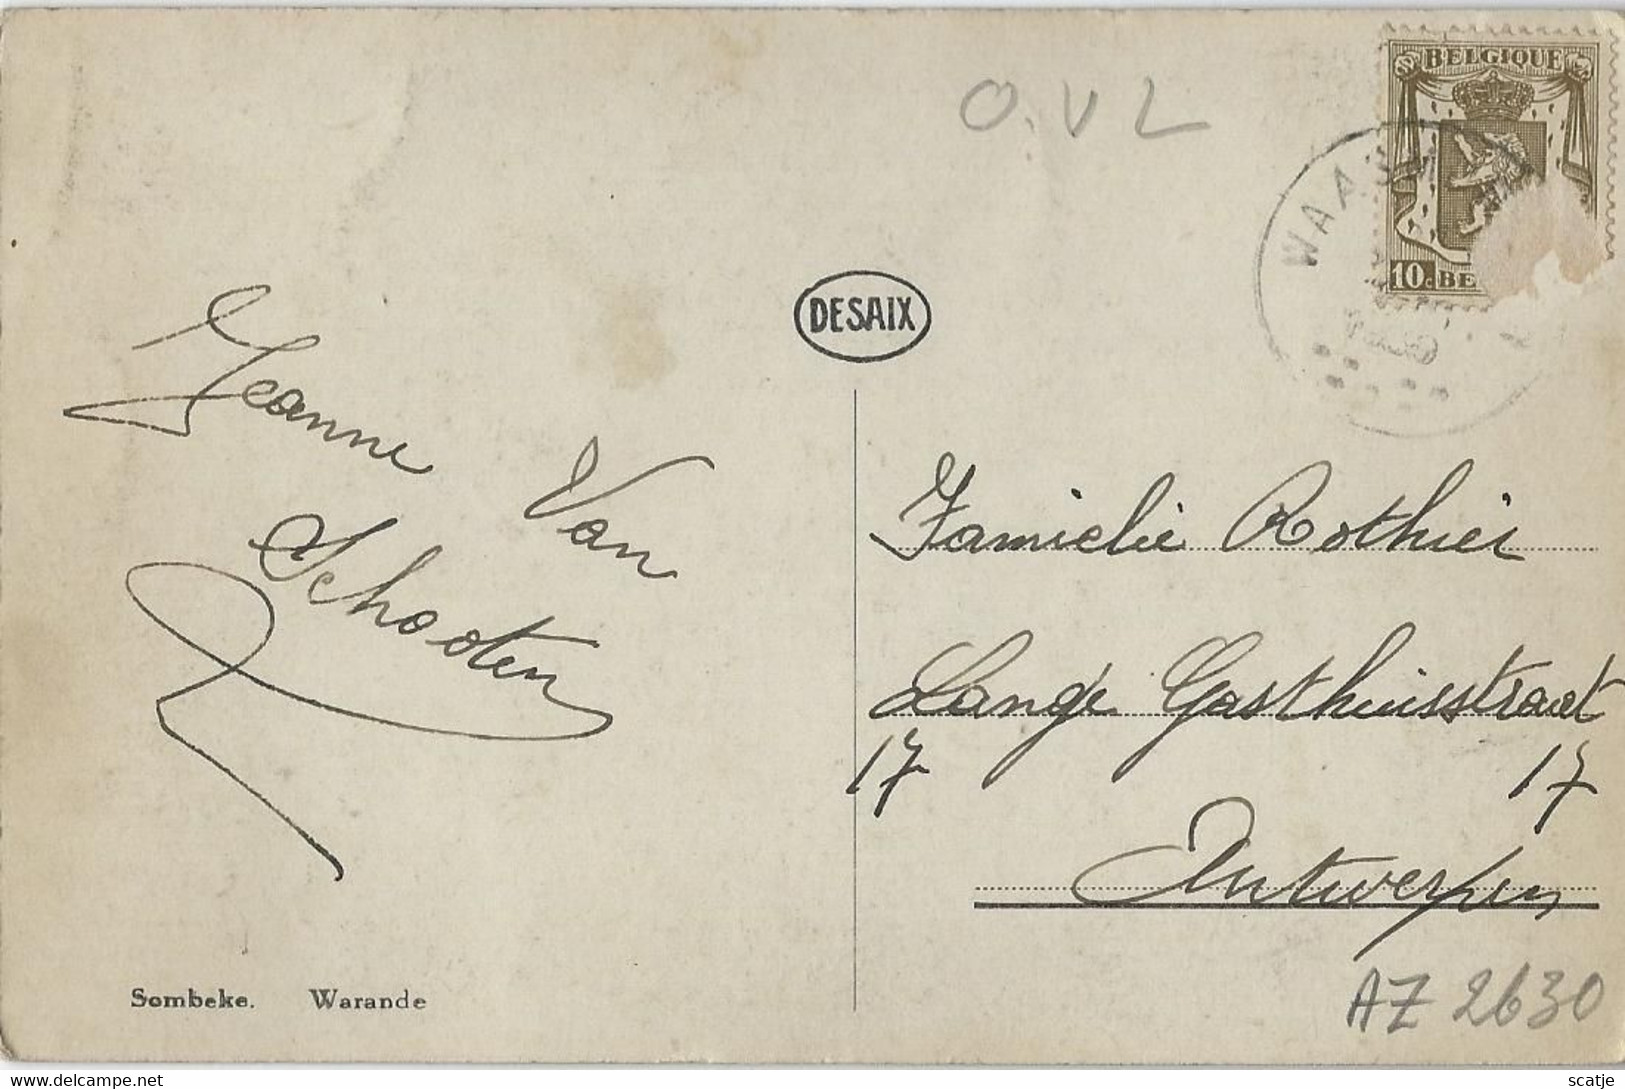 O.VL
BELGIQUE
WAASM
10c BE
DESAIX
Jeanne Van
Schooten
Familie Rothier
Lange Gasthuisstraat
17 17
Antwerpen
Sombeke. Warande
AZ 2630
delcampe.net
scatje